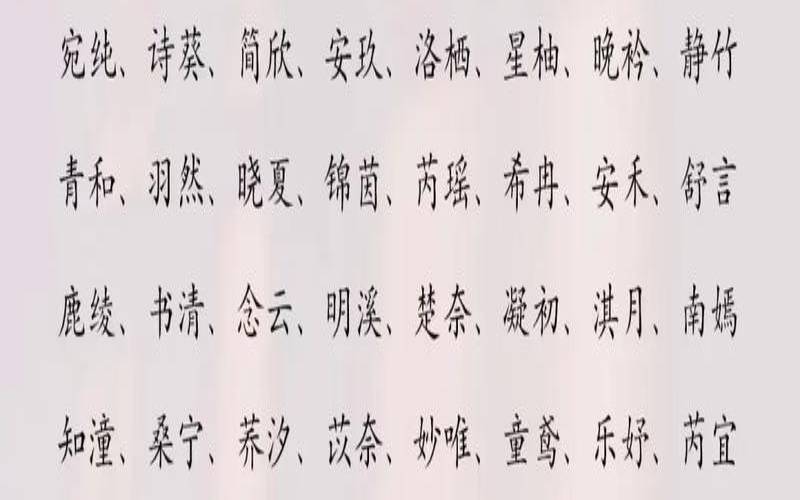 宛纯、诗葵、简欣、安玖、洛栖、星柚、晚衿、静竹
青和、羽然、晓夏、锦茵、芮瑶、希冉、安禾、舒言
鹿绫、书清、念云、明溪、楚奈、凝初、淇月、南嫣
知潼、桑宁、荞汐、苡奈、妙唯、童鸢、乐妤、芮宜